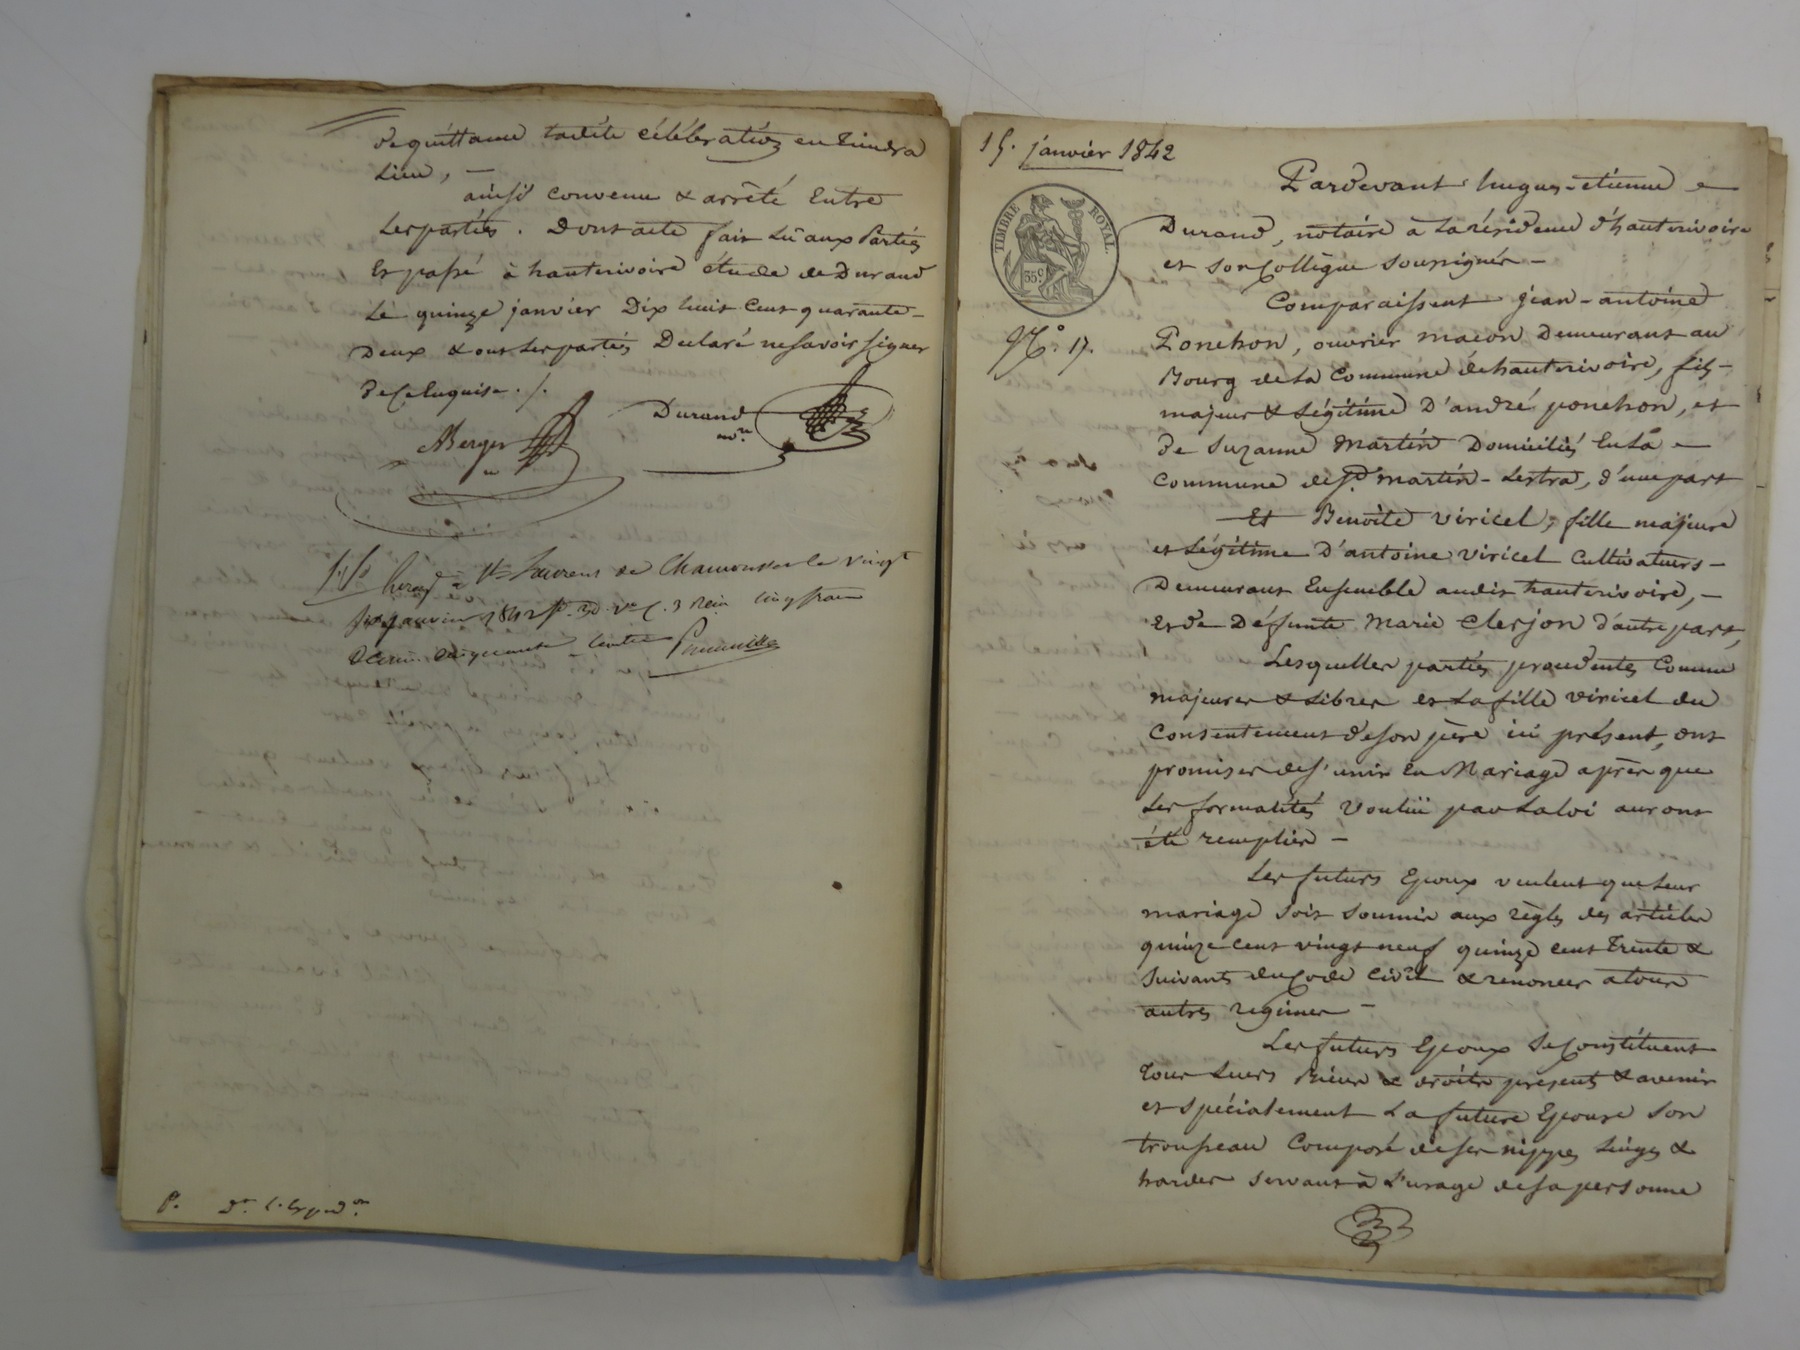 de quittance ladite célébration en tiendra
Lieu, —
ainsi convenu & arrêté Entre
Les parties. Dont acte fait Lu aux Parties
Et passé à hauterivoire étude de Durand
Le quinze janvier Dix huit Cent quarante-
Deux & ont Les parties Déclaré ne Savoir signer
de Ce Enquise ./.
Durand
nre
Berger
à St Laurent de Chamousset le vingt
janvier 1842 f° 30 Ve C. 3 Reçu cinq francs
décime cinquante centes
P.
15. janvier 1842
Pardevant hugues-etienne
TIMBRE ROYAL.
35c
Durand, notaire à La résidence d'hauterivoire
et son Collègue soussignés —
Comparaissent jean-antoine
N°. 17.
Ponchon, ouvrier macon Demeurant au
Bourg de La Commune de hauterivoire, fils
majeur & Légitime D'andré ponchon, et
de Suzanne Martin Domiciliés En La
Commune de St martin-Lestra, d'une part
Et Benoite viricel, fille majeure
et Légitime D'antoine viricel Cultivateurs
Demeurant Ensemble audit hauterivoire, —
Et de Déffunte Marie Clerjon d'autre part,
Lesquelles parties procedantes Comme
majeures & Libres et La fille viricel du
Consentement de son père ici présent, ont
promis de s'unir En Mariage après que
Les formalités Voulüe par La loi auront
été remplies —
Les futurs Epoux veulent que Leur
mariage soit soumis aux règles des articles
quinze cent vingt neuf quinze cent Trente &
Suivants du Code Civil & renoncer a tous
autres regimes —
Les futurs Epoux Se Constituent
Tous Leurs Biens & droits présents & avenir
et spécialement La future Epouse Son
trousseau Composé de ses nippes Linges &
hardes servant à L'usage de sa personne